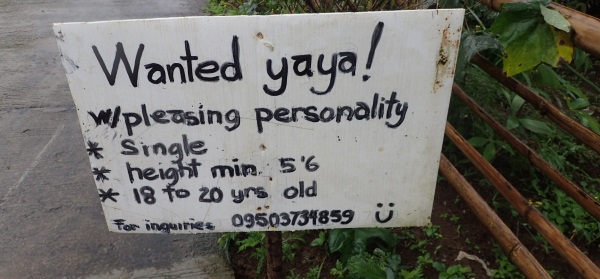 Wanted yaya!
w/pleasing personality
* Single
* height min. 5'6
* 18 to 20 yrs old
For inquiries 09503734859 Ü